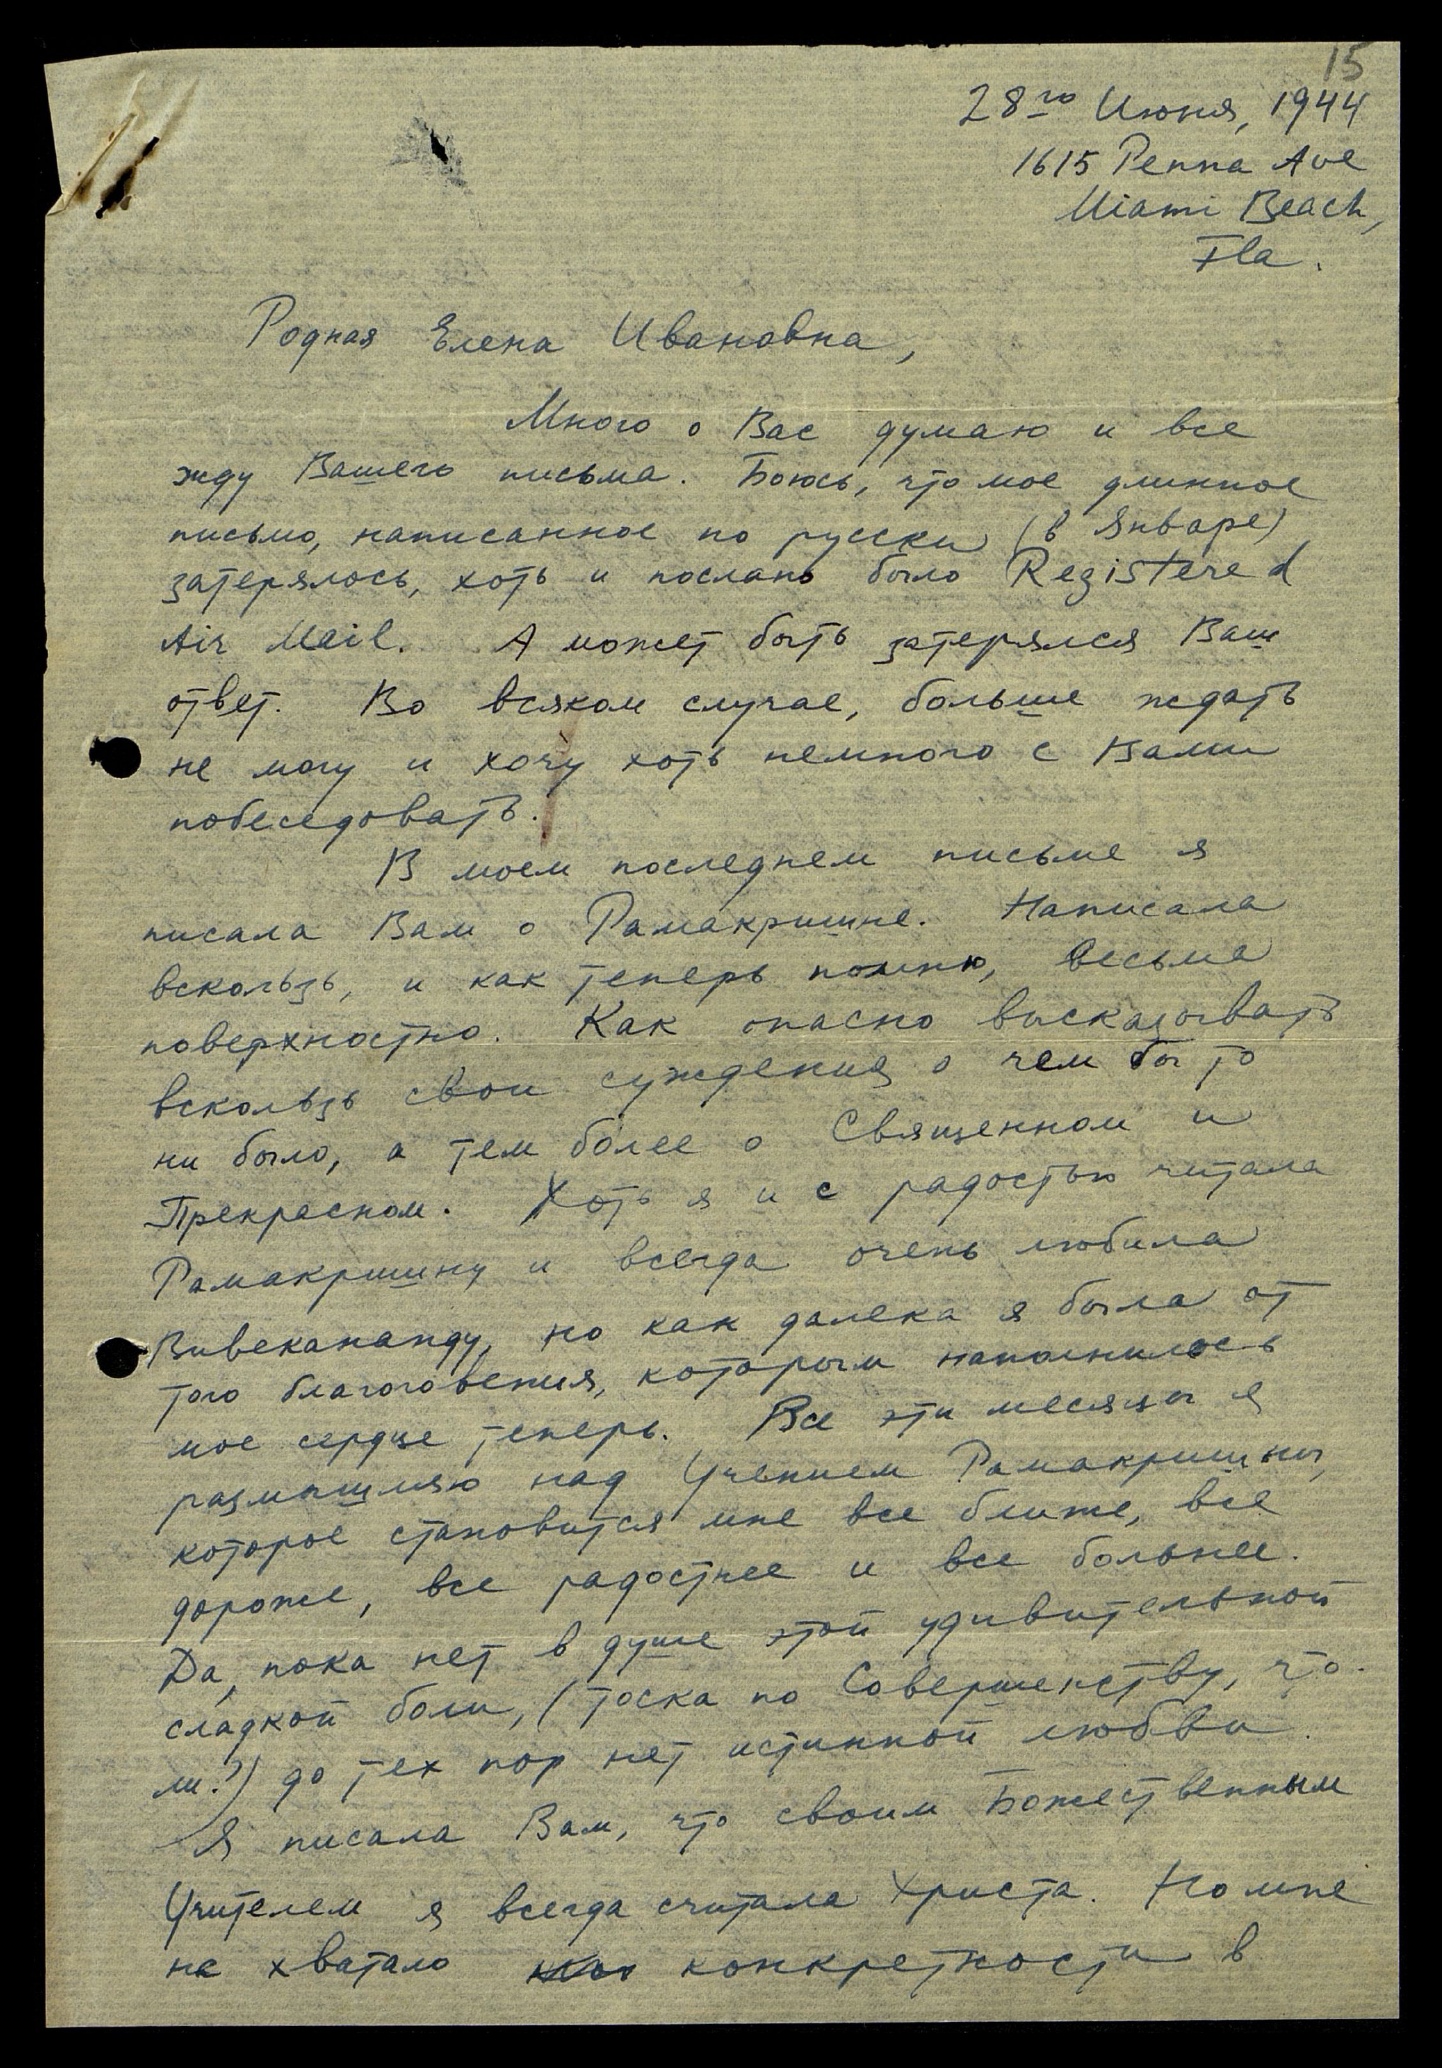 15
28го Июня, 1944
1615 Penna Ave
Miami Beach,
Fla.
Родная Елена Ивановна,
Много о Вас думаю и все
жду Вашего письма. Боюсь, что мое длинное
письмо, написанное по русски (в Январе)
затерялось, хоть и послано было Registered
Air Mail. А может быть затерялся Ваш
ответ. Во всяком случае, больше ждать
не могу и хочу хоть немного с Вами
побеседовать.
В моем последнем письме я
писала Вам о Рамакришне. Написала
вскользь, и как теперь помню, весьма
поверхностно. Как опасно высказывать
вскользь свои суждения о чем бы то
ни было, а тем более о Священном и
Прекрасном. Хоть я и с радостью читала
Рамакришну и всегда очень любила
Вивекананду, но как далека я была от
того благоговения, которым наполнилось
мое сердце теперь. Все эти месяцы я
размышляю над Учением Рамакришны,
которое становится мне все ближе, все
дороже, все радостнее и все больнее.
Да, пока нет в душе этой удивительной
сладкой боли, (тоска по Совершенству, что-
ли?) до тех пор нет истинной любви.
Я писала Вам, что своим Божественным
Учителем я всегда считала Христа. Но мне
не хватало конкретности в